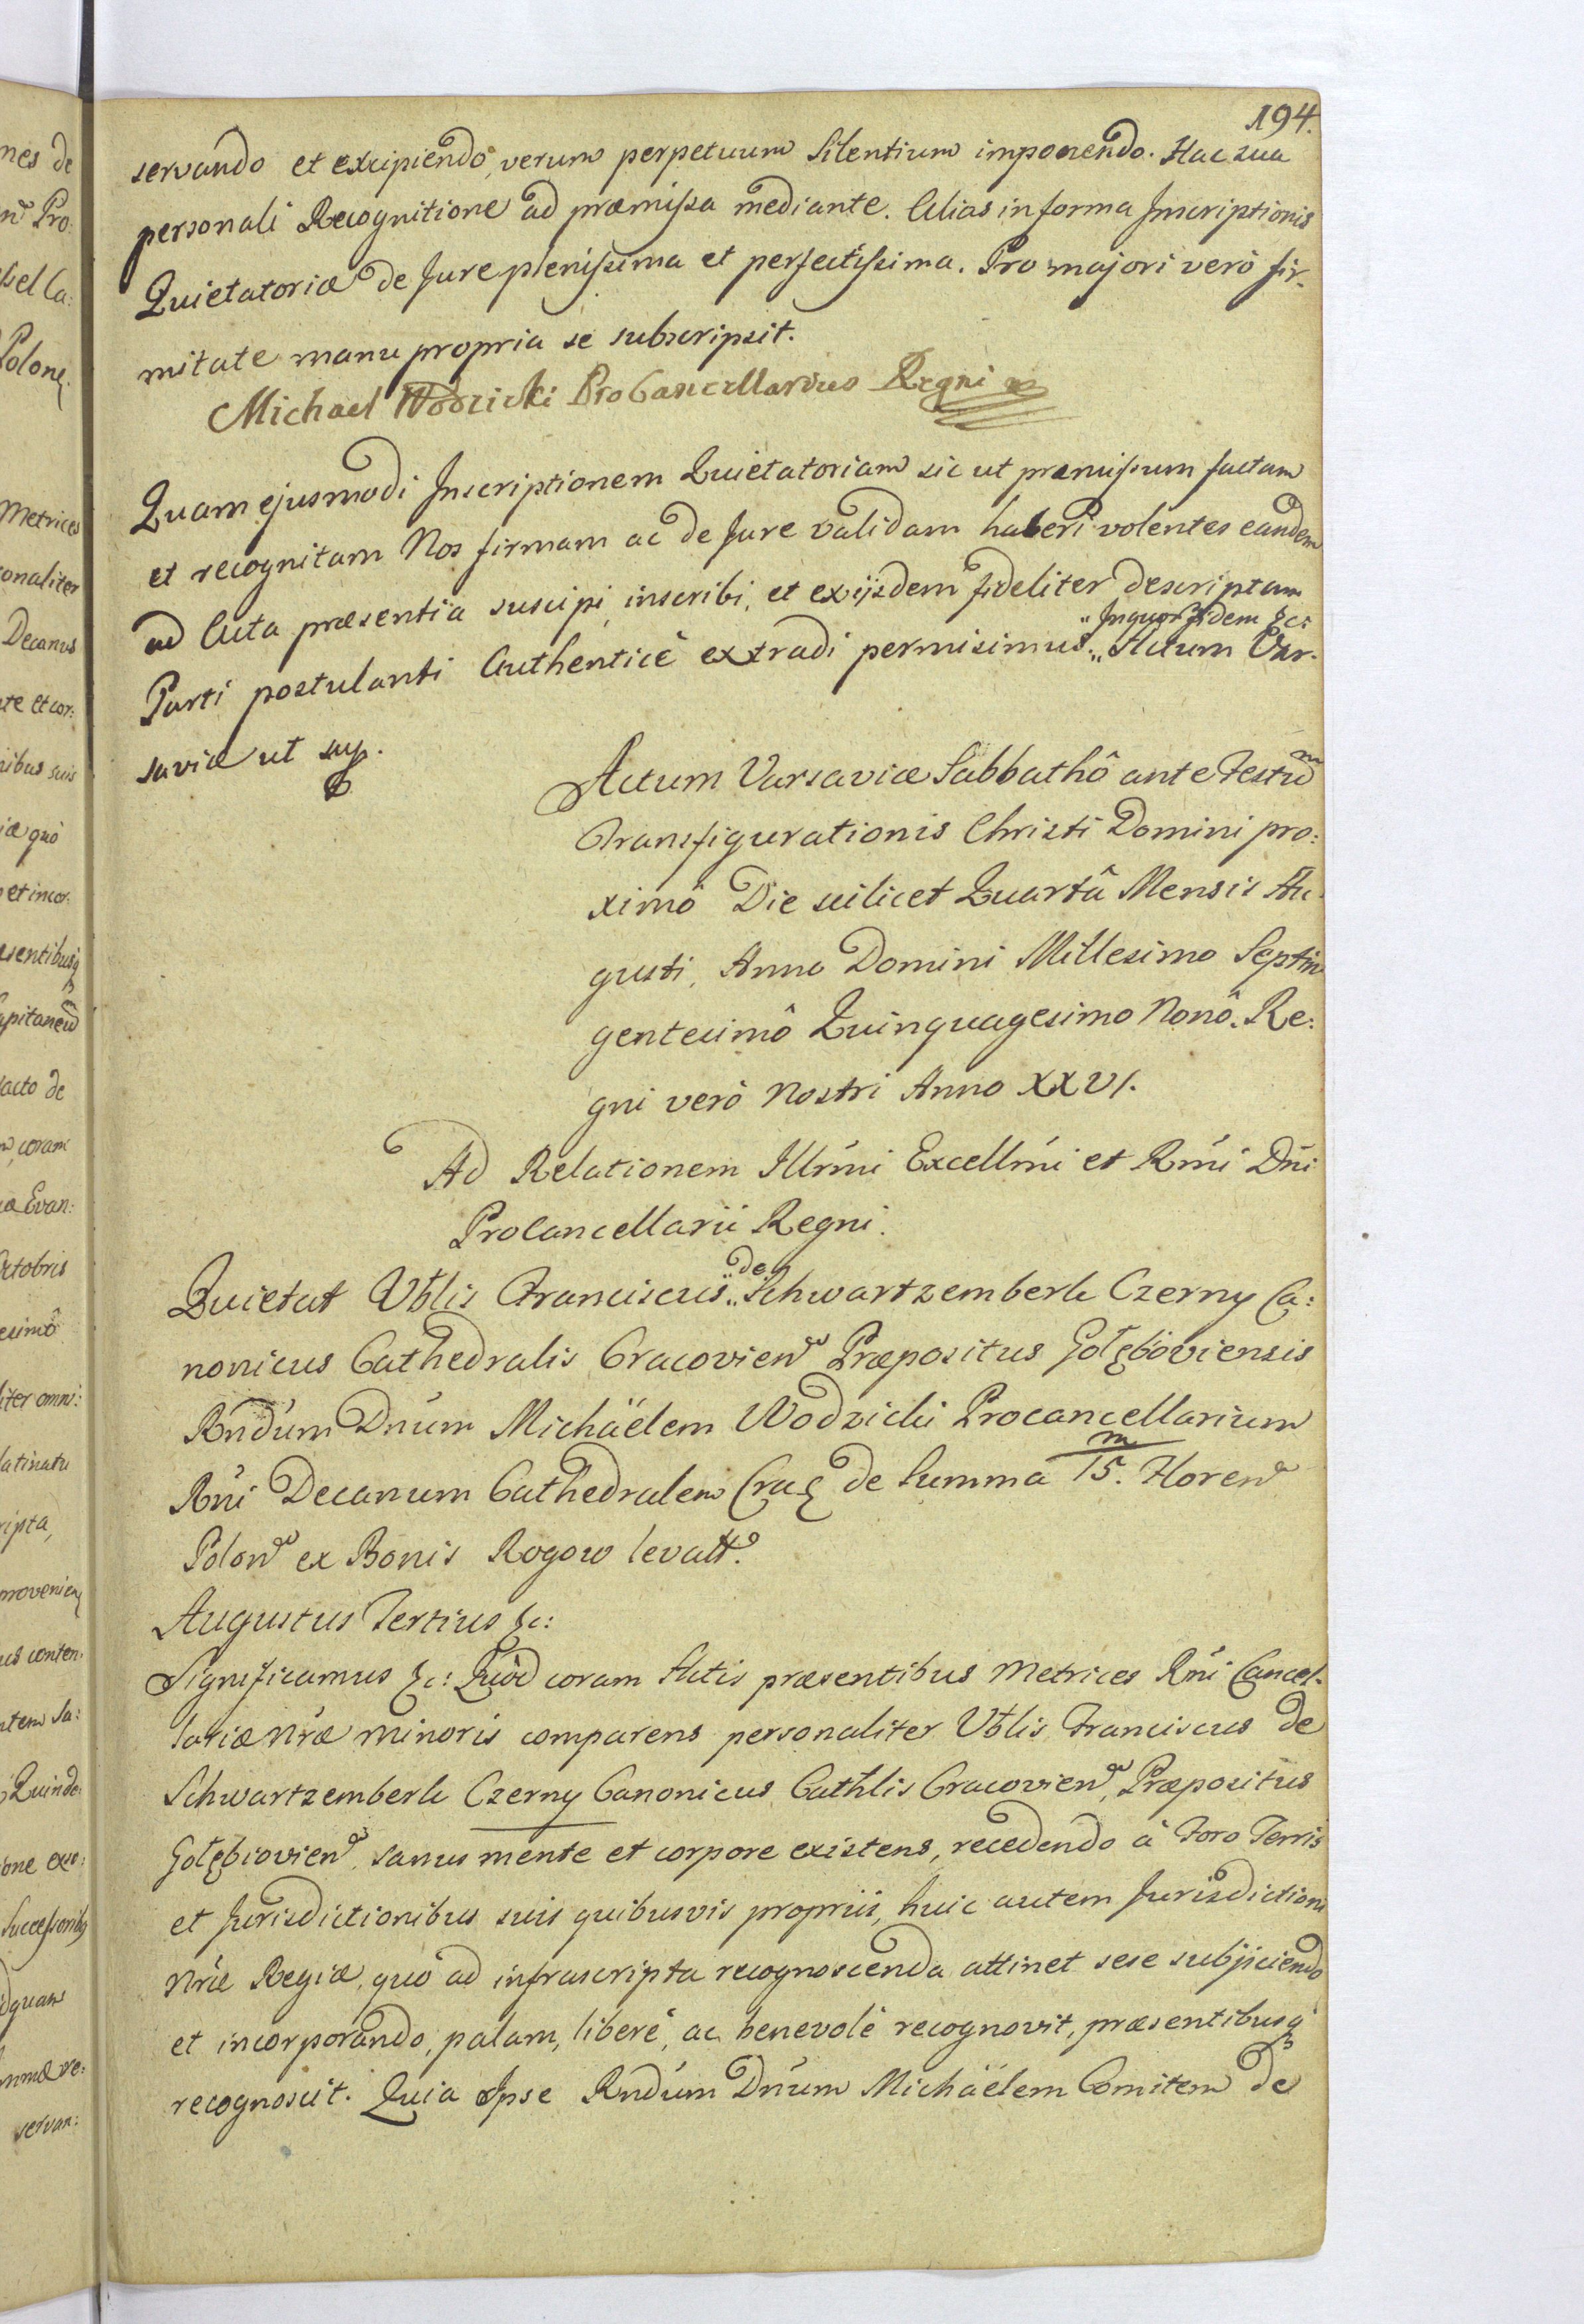 194.
servando et excipiendo, verum perpetuum Silentium imponendo. Hac sua
personali Recognitione ad præmissa mediante. Alias in forma Inscriptionis
Quietatoriæ de Jure plenissima et perfectissima. Pro majori verò fir-
mitate manu propria se subscripsit.
Michael Wodzicki ProCancellarius Regni
Quam ejusmodi Inscriptionem Quietatoriam sic ut præmissum factam
et recognitam Nos firmam ac de Jure validam haberi volentes eandem
ad Acta præsentia suscipi, inscribi, et ex ijsdem fideliter descriptam
„Inquor fidem &c:
Parti postulanti Authenticè extradi permisimus.„ Actum Var-
saviæ ut sup.
Actum Varsaviæ Sabbathô ante Festũ
Transfigurationis Christi Domini pro:
ximô Die scilicet Quartâ Mensis Au-
gusti, Anno Domini Millesimo Septin
gentesimô Quinquagesimo Nonô. Re:
gni verò Nostri Anno XXVI.
Ad Relationem Illr̃mi Excellm̃i et Rm̃i Dñi
ProCancellarii Regni.
„de
Quietat Vb̃lis Franciscus„ Schwartzemberk Czerny Ca:
nonicus Cathedralis Cracovien̄ Præpositus Gołębioviensis
Rñdum Dñum Michäelem Wodzicki Procancellarium
Rñi Decanum Cathedralem Crac̨ de Summa m/15. Floren̄
Polon̄ ex Bonis Rogow levatt̄.
Augustus Tertius &c:
Significamus &c: Quòd coram Actis præsentibus Metrices Rñi Cancel-
lariæ Nr̃æ minoris comparens personaliter Vb̃lis Franciscus de
Schwartzemberk Czerny Canonicus Cathlis Cracovien̄, Præpositus
Gołębiovien̄, sanus mente et corpore existens, recedendo à Foro Terris
et Jurisdictionibus suis quibusvis propriis, huic autem Jurisdictioni
Nr̃æ Regiæ, quò ad infrascripta recognoscenda attinet sese subjiciendo
et incorporando, palam, liberè, ac benevolè recognovit, præsentibusq̃
recognoscit. Quia Ipse Rñdum Dñum Michäelem Comitem de